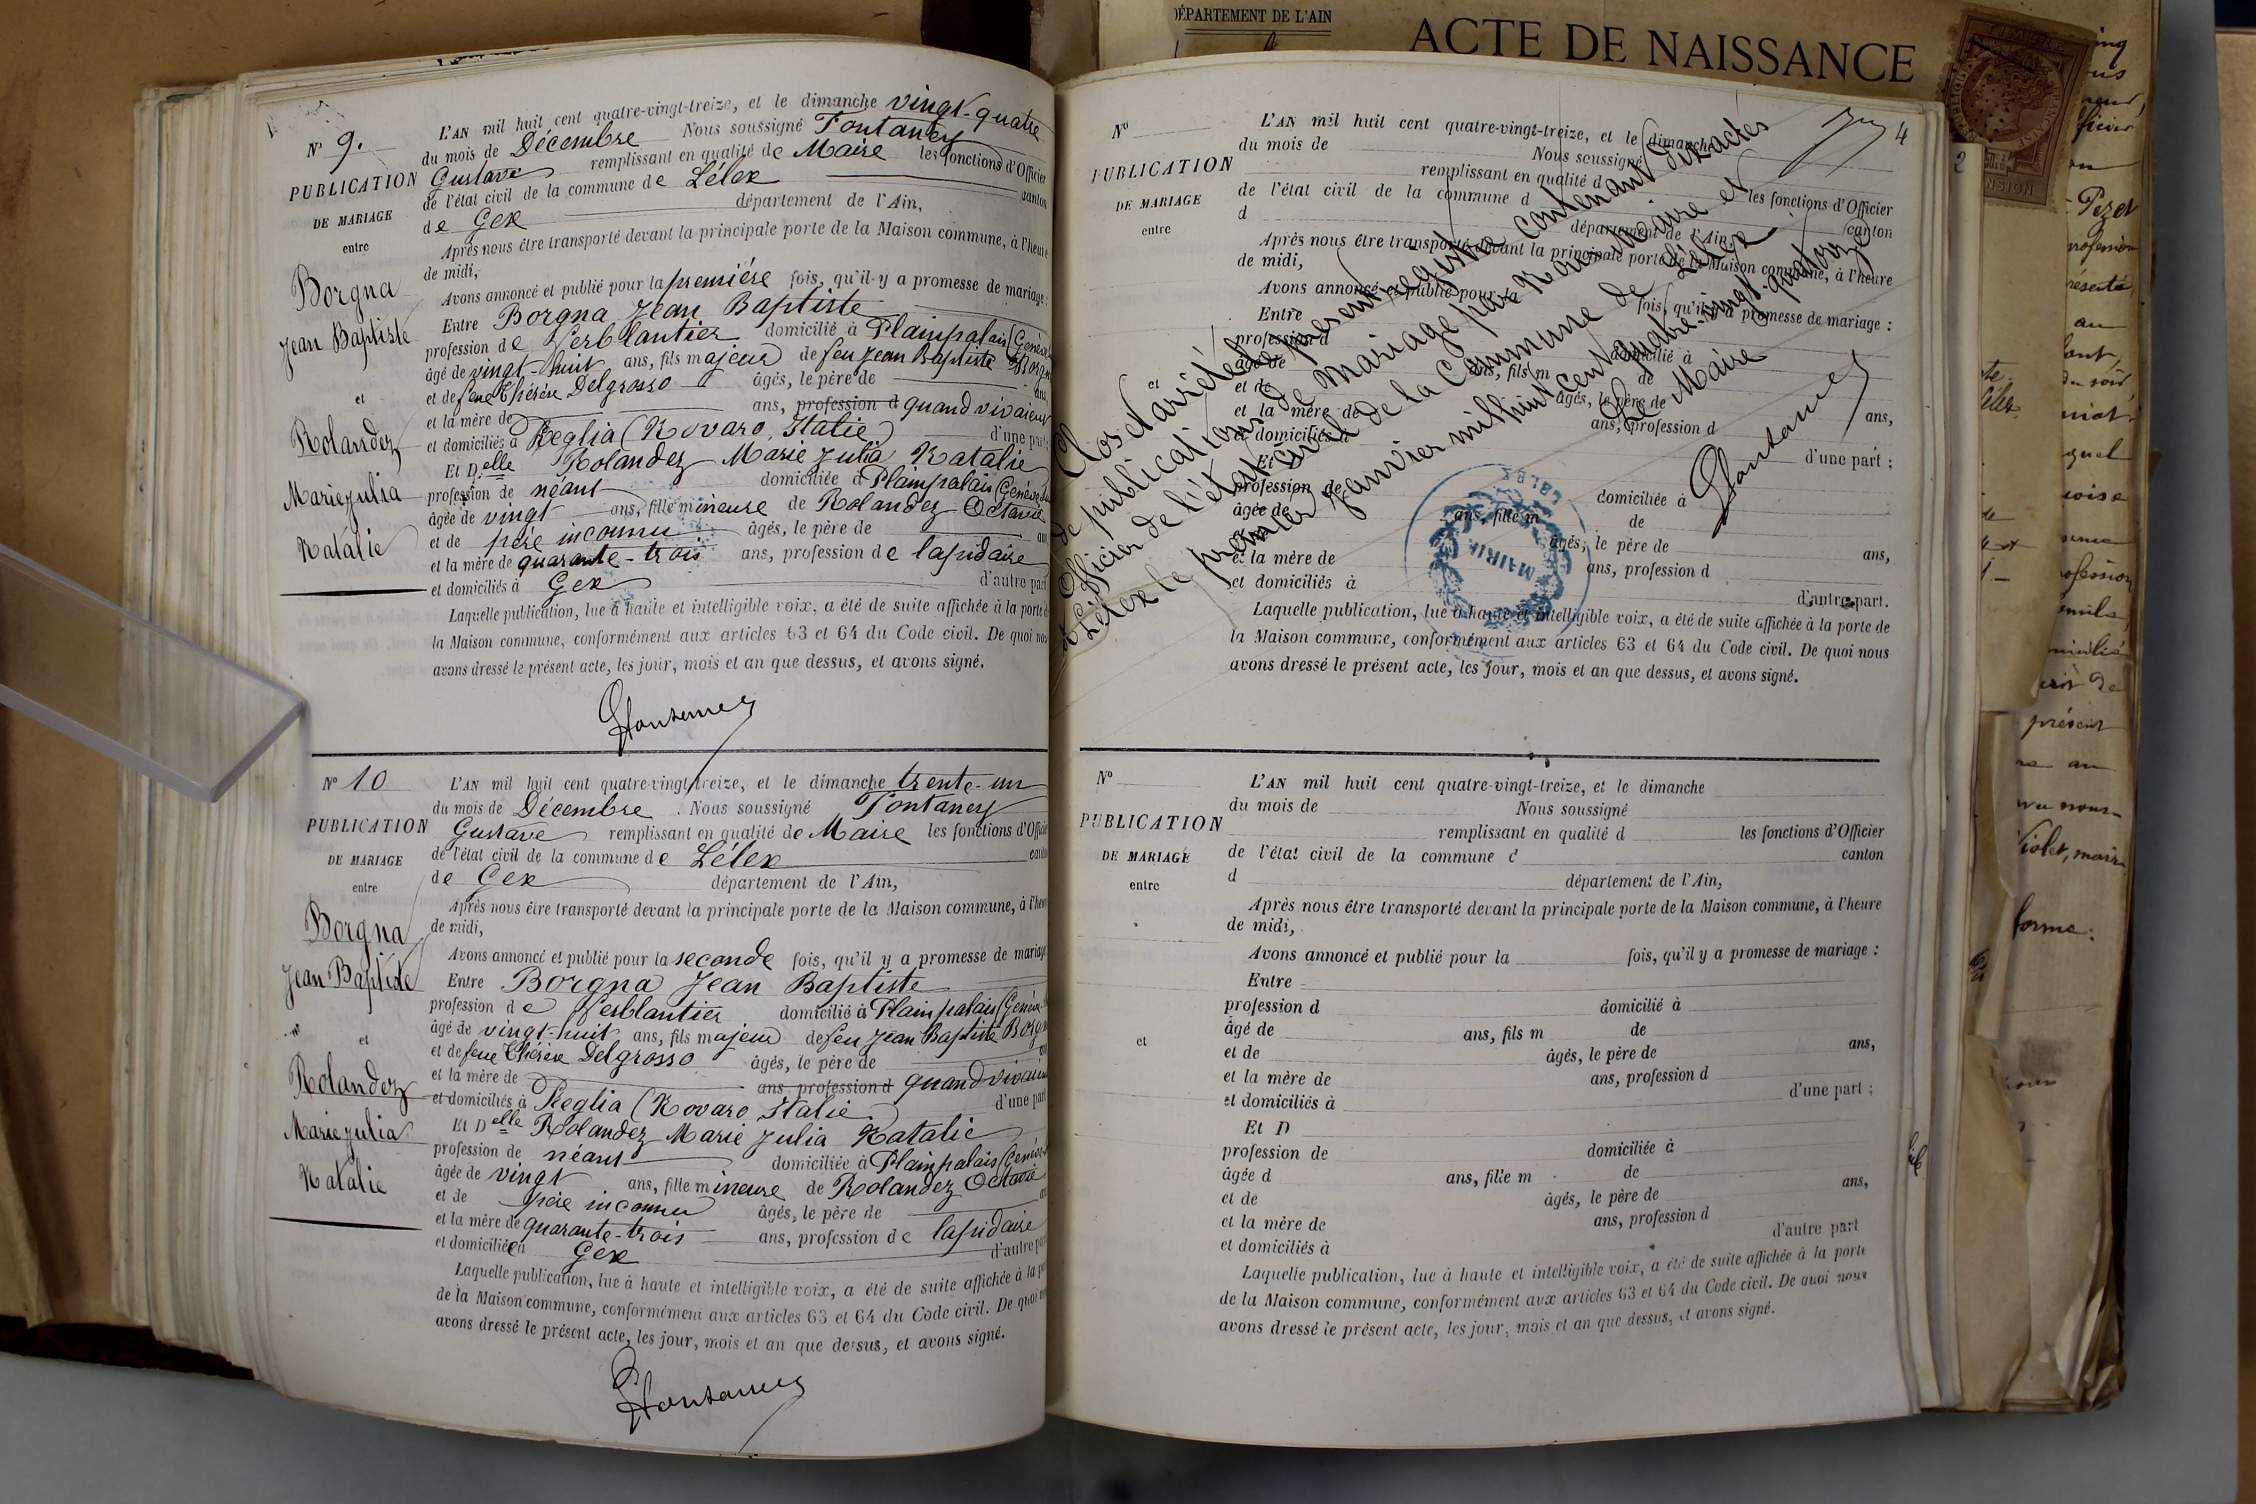 N° 9.
PUBLICATION
DE MARIAGE
entre
Borgna
Jean Baptiste
et
Rolandez
Marie Julia
Natalie
L'AN mil huit cent quatre-vingt-treize, et le dimanche vingt-quatre
du mois de Décembre Nous soussigné Fontaney
Gustave remplissant en qualité de Maire les fonctions d'Officier
de l'état civil de la commune de Lélex canton
de Gex département de l'Ain,
Après nous être transporté devant la principale porte de la Maison commune, à l'heure
de midi,
Avons annoncé et publié pour la première fois, qu'il y a promesse de mariage :
Entre Borgna Jean Baptiste
profession de ferblantier domicilié à Plainpalais (Genève
âgé de vingt-huit ans, fils majeur de feu Jean Baptiste Borgna
et de feue Thérèse Delgrosso âgés, le père de ans,
et la mère de ans, profession d quand vivaient
et domiciliés à Reglia (Novaro, Italie) d'une part
Et Delle Rolandez Marie Julia Natalie
profession de néant domiciliée à Plainpalais (Genève
âgée de vingt ans, fille mineure de Rolandez Octavie
et de père inconnu âgés, le père de
et la mère de quarante-trois ans, profession de lapidaire
et domiciliés à Gex d'autre part
Laquelle publication, lue à haute et intelligible voix, a été de suite affichée à la porte de
la Maison commune, conformément aux articles 63 et 64 du Code civil. De quoi nous
avons dressé le présent acte, les jour, mois et an que dessus, et avons signé.
GFontaney
N° 10
PUBLICATION
DE MARIAGE
entre
Borgna
Jean Baptiste
et
Rolandez
Marie Julia
Natalie
L'AN mil huit cent quatre-vingt-treize, et le dimanche trente-un
du mois de Décembre . Nous soussigné Fontaney
Gustave remplissant en qualité de Maire les fonctions d'Officier
de l'état civil de la commune de Lélex canton
de Gex département de l'Ain,
Après nous être transporté devant la principale porte de la Maison commune, à l'heure
de midi,
Avons annoncé et publié pour la seconde fois, qu'il y a promesse de mariage
Entre Borgna Jean Baptiste
profession de ferblantier domicilié à Plainpalais (Genève
âgé de vingt-huit ans, fils majeur de feu Jean Baptiste Borgna
et de feue Thérèse Delgrosso âgés, le père de
et la mère de ans, profession d quand vivaient
et domiciliés à Reglia (Novaro, Italie) d'une part
Et Delle Rolandez Marie Julia Natalie
profession de néant domiciliée à Plainpalais (Genève
âgée de vingt ans, fille mineure de Rolandez Octavie
et de père inconnu âgés, le père de
et la mère de quarante-trois ans, profession de lapidaire
et domiciliée à Gex d'autre part
Laquelle publication, lue à haute et intelligible voix, a été de suite affichée à la
de la Maison commune, conformément aux articles 63 et 64 du Code civil. De quoi
avons dressé le présent acte, les jour, mois et an que dessus, et avons signé.
GFontaney
DÉPARTEMENT DE L'AIN
ACTE DE NAISSANCE
4
N°
PUBLICATION
DE MARIAGE
entre
et
L'AN mil huit cent quatre-vingt-treize, et le dimanche
du mois de Nous soussigné
remplissant en qualité d les fonctions d'Officier
de l'état civil de la commune d canton
d département de l'Ain,
Après nous être transporté devant la principale porte de la Maison commune, à l'heure
de midi,
Avons annoncé et publié pour la fois, qu'il y a promesse de mariage :
Entre
profession d domicilié à
âgé de ans, fils m de
et de âgés, le père de ans,
et la mère de ans, profession d
et domiciliés à d'une part ;
Et D
profession de domiciliée à
âgée d ans, fille m de
et de âgés, le père de ans,
et la mère de ans, profession d
et domiciliés à d'autre part.
Laquelle publication, lue à haute et intelligible voix, a été de suite affichée à la porte de
la Maison commune, conformément aux articles 63 et 64 du Code civil. De quoi nous
avons dressé le présent acte, les jour, mois et an que dessus, et avons signé.
Clos et arrêté le présent registre contenant dix actes
de publications de mariage par Nous Maire et
Officier de l'état civil de la Commune de Lélex
à Lélex le premier janvier mil huit cent quatre-vingt-quatorze
Le Maire
GFontaney
MAIRIE
LÉLEX
N°
PUBLICATION
DE MARIAGE
entre
et
L'AN mil huit cent quatre-vingt-treize, et le dimanche
du mois de Nous soussigné
remplissant en qualité d les fonctions d'Officier
de l'état civil de la commune d canton
d département de l'Ain,
Après nous être transporté devant la principale porte de la Maison commune, à l'heure
de midi,
Avons annoncé et publié pour la fois, qu'il y a promesse de mariage :
Entre
profession d domicilié à
âgé de ans, fils m de
et de âgés, le père de ans,
et la mère de ans, profession d
et domiciliés à d'une part ;
Et D
profession de domiciliée à
âgée d ans, fille m de
et de âgés, le père de ans,
et la mère de ans, profession d
et domiciliés à d'autre part
Laquelle publication, lue à haute et intelligible voix, a été de suite affichée à la porte
de la Maison commune, conformément aux articles 63 et 64 du Code civil. De quoi nous
avons dressé le présent acte, les jour, mois et an que dessus, et avons signé.
2
Pezet
profession
au
du soir
quel
profession
présent
au
Violet, maire
forme: